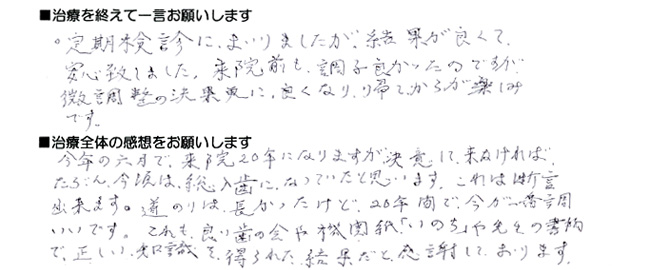 ■治療を終えて一言お願いします
。定期検診に、まいりましたが、結果が良くて、
安心致しました。来院前も、調子良かったのですが
微調整の決果更に、良くなり、帰ってからが楽しみ
です。
■治療全体の感想をお願いします
今年の六月で、来院20年になりますが決意して、来なければ、
たぶん、今頃は、総入歯に、なっていたと思います、これは断言
出来ます。道のりは、長かったけど、20年間で、今が一番調
いいです。これも、良い歯の会や機関紙「いのち」や先生の書物
で、正しい、知識を、得られた結果だと感謝して、おります。